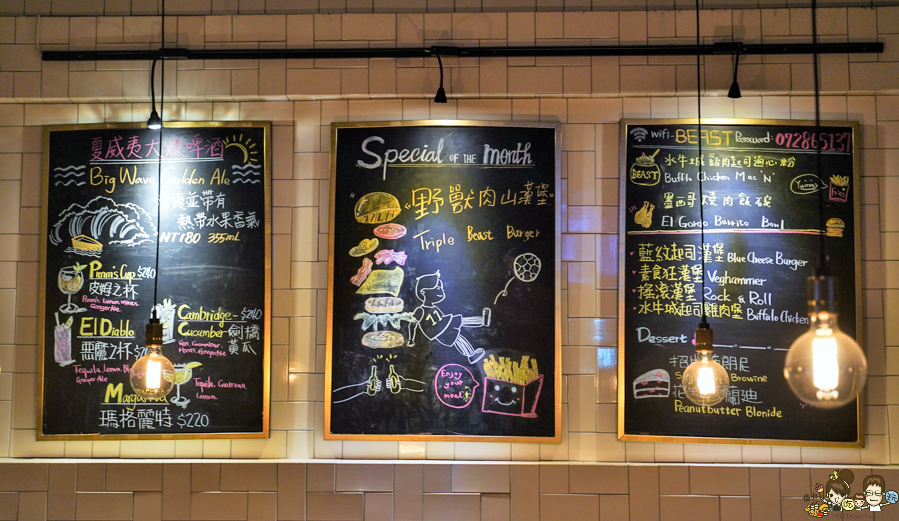 夏威夷大浪啤酒
Big Wave Golden Ale
並帶有
熱帶水果香氣
NT180 355mL
Pimm's Cup $240
皮姆之杯
Pimm's, Lemon,
Ginger Ale
El Diablo
惡魔之杯
Tequila, Lemon,
Ginger Ale
Cambridge- $240
Cucumber 劍橋
黃瓜
Tequila, Cointreau,
Lemon
瑪格麗特 $220
Special OF THE month
野獸肉山漢堡
Triple Beast Burger
Enjoy
your
meal!
wifi- BEAST Password:
BEAST
水牛城雞肉起司通心粉
Bufflo Chicken Mac 'N'
Yummy
Fries
墨西哥燒肉飯碗
El Gordo Burrito Bowl
藍紋起司漢堡 Blue Cheese Burger
素食狂漢堡 Veghammer
搖滾漢堡 Rock & Roll
水牛城起司雞肉堡 Buffalo Chicken
Dessert
朋尼
Browine
蘭迪
Peanutbutter Blonide